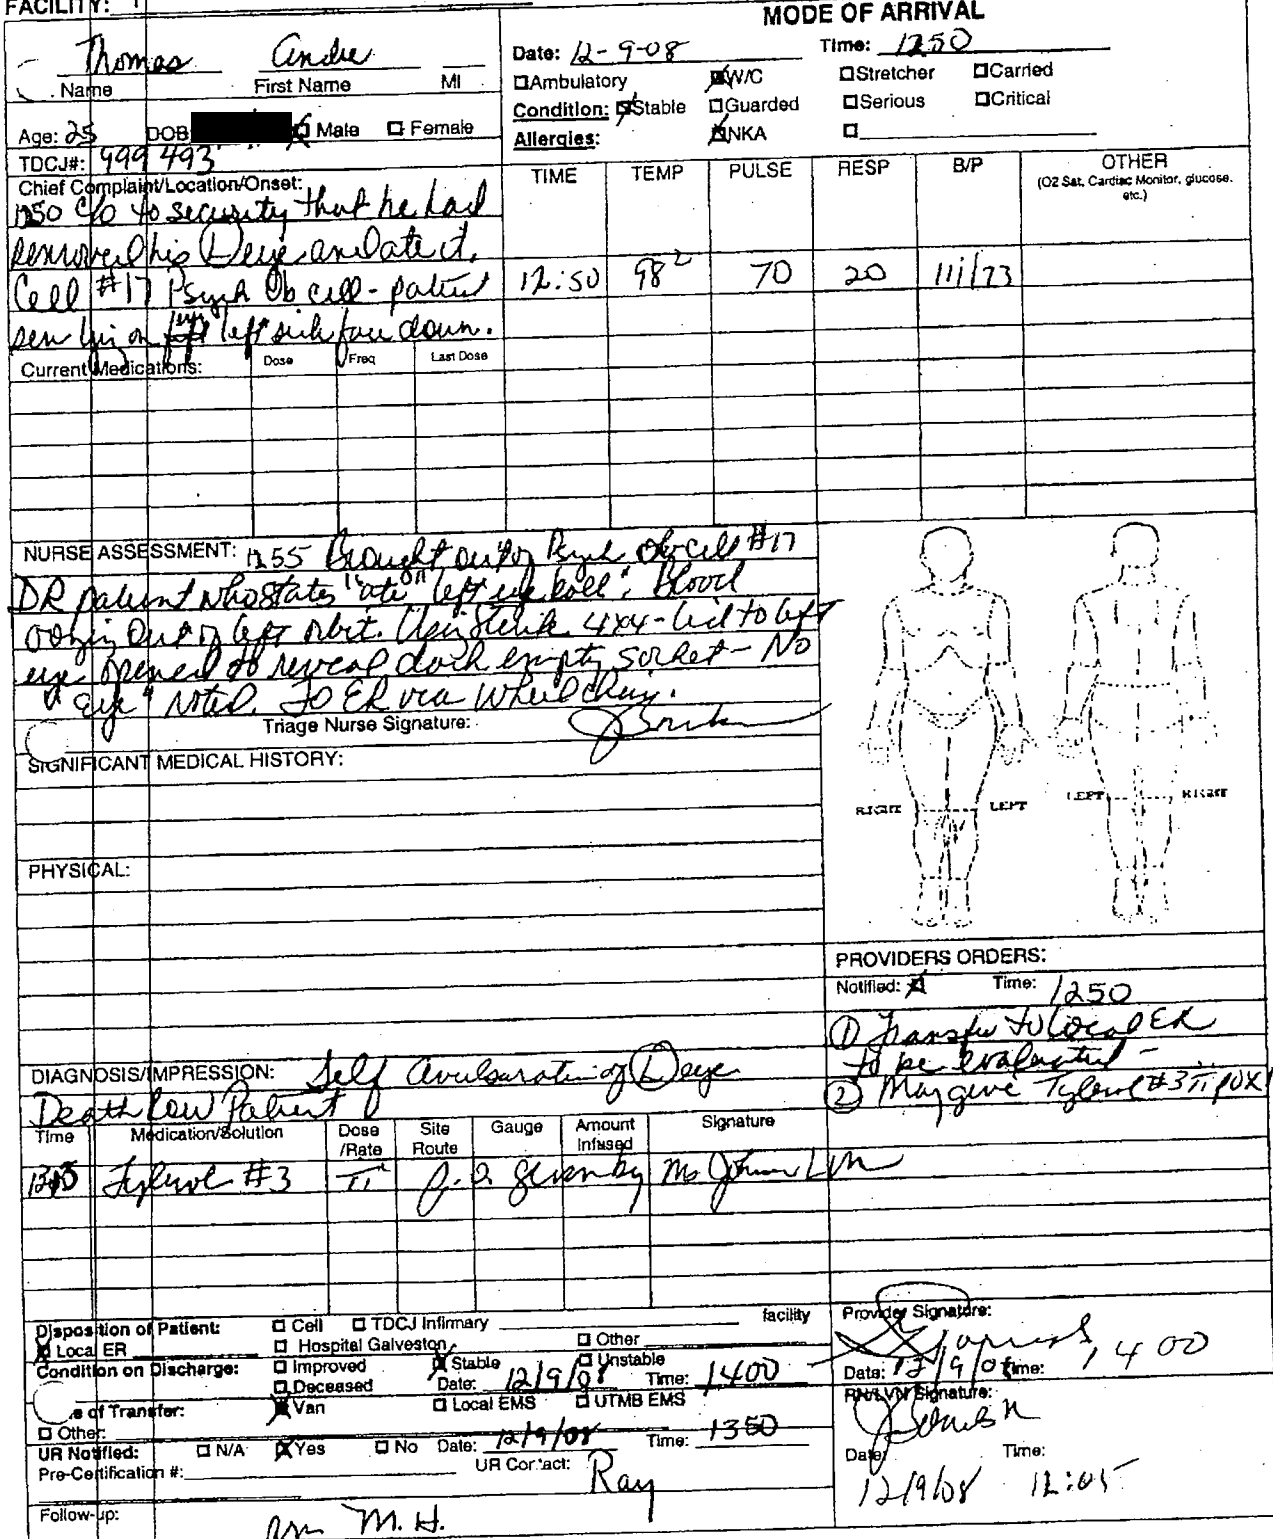 FACILITY:
MODE OF ARRIVAL
Thomas Andre
Name First Name MI
Date: 12-9-08 Time: 1250
□Ambulatory ☒W/C □Stretcher □Carried
Condition: ☒Stable □Guarded □Serious □Critical
Allergies: ☒NKA □
Age: 25 DOB ☒ Male □ Female
TDCJ#: 999493
Chief Complaint/Location/Onset:
1250 c/o to security that he had
removed his Ⓛ eye and ate it.
Cell #17 Psych Ob cell - patient
seen lying on left side face down.
TIME TEMP PULSE RESP B/P OTHER
(O2 Sat, Cardiac Monitor, glucose. etc.)
12:50 98² 70 20 111/73
Current Medications: Dose Freq Last Dose
NURSE ASSESSMENT: 1255 Brought out of Psych Ob cell #17
DR patient who states "ate" left eye ball". Blood
oozing out of left orbit. Using sterile 4x4 - lid to left
eye opened to reveal dark empty socket - No
"eye" noted. To ER via wheelchair.
Triage Nurse Signature:
SIGNIFICANT MEDICAL HISTORY:
RIGHT LEFT LEFT RIGHT
PHYSICAL:
PROVIDERS ORDERS:
Notified: ☒ Time: 1250
① Transfer to local ER
to be evaluated -
② May give Tylenol #3 ii po x1
DIAGNOSIS/IMPRESSION: Self of Ⓛ eye
Death Row Patient
Time Medication/Solution Dose /Rate Site Route Gauge Amount Infused Signature
Tylenol #3 ii p.o given by Ms
Disposition of Patient: □ Cell □ TDCJ Infirmary facility
☒ Local ER □ Hospital Galveston □ Other
Condition on Discharge: □ Improved ☒ Stable □ Unstable
□ Deceased Date: 12/9/08 Time: 1400
e of Transfer: ☒ Van □ Local EMS □ UTMB EMS
□ Other:
UR Notified: □ N/A ☒ Yes □ No Date: 12/9/08 Time: 1350
Pre-Certification #: UR Contact: Ray
Follow-up: M.H.
Provider Signature:
Date: 12/9/08 Time: 1400
RN/LVN Signature:
Date: Time:
12/9/08 12:05